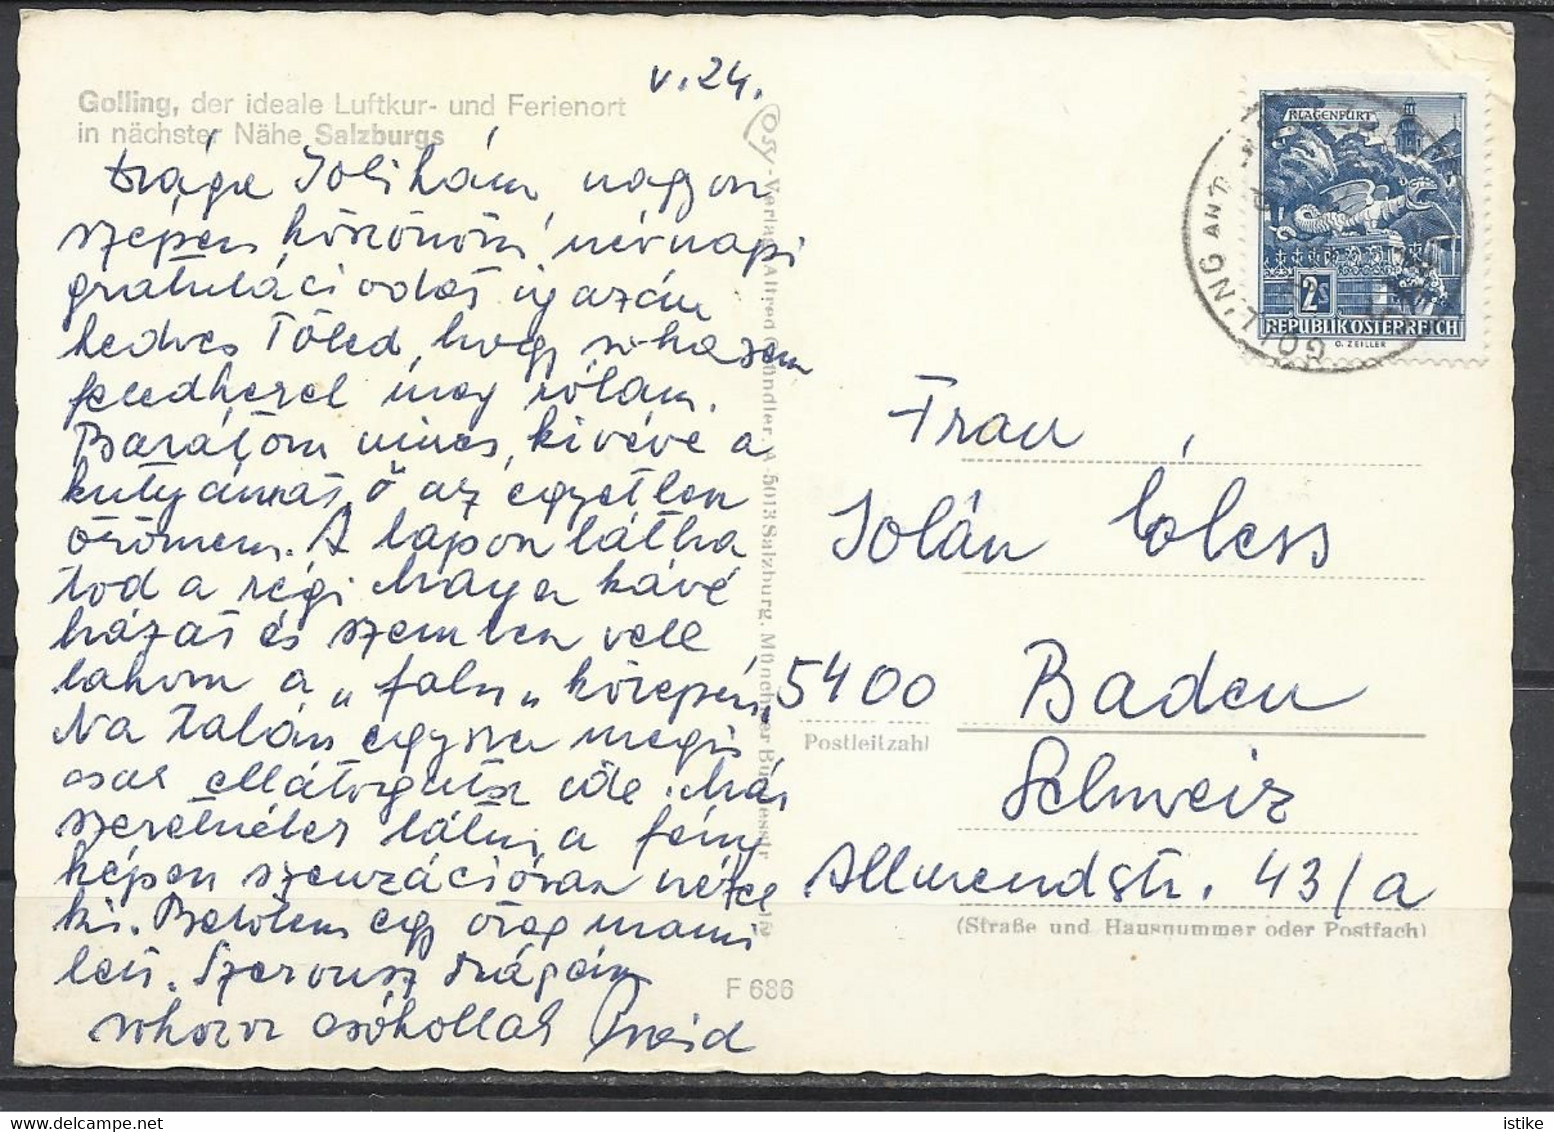 v. 24.
Golling, der ideale Luftkur- und Ferienort
in nächster Nähe Salzburgs
Drága Jolikám, nagyon
szépen köszönöm névnapi
gratulációdat igazán
kedves Tőled, hogy sohasem
feledkezel meg rólam.
Barátom nincs, kivéve a
kutyámat, ő az egyetlen
örömem. A lapon látha
tod a régi Maya kávé
házat és szemben vele
lakom a „falu„ közepén,
Na talán egyszer mégis
csak ellátogatsz ide. Már
szeretnélek látni, a fény
képen szenzációsan nézel
ki. Belőlem egy öreg mami
lett. Szervusz drágám
sokszor csókollak
Cosy-Verlag Alfred Gründler, A-5013 Salzburg, Münchner Bundesstr.
F 686
KLAGENFURT
2s
REPUBLIK ÖSTERREICH
O. ZEILLER
GOLLING
Frau
Jolán
5400 Baden
Postleitzahl
Schweiz
Allmendstr. 43/a
(Straße und Hausnummer oder Postfach)
istike